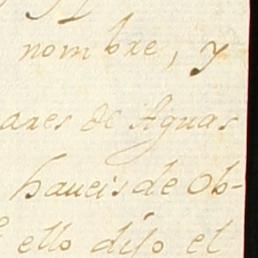 nombre, y
ares de Aguas
haueis de Ob-
ello dijo el